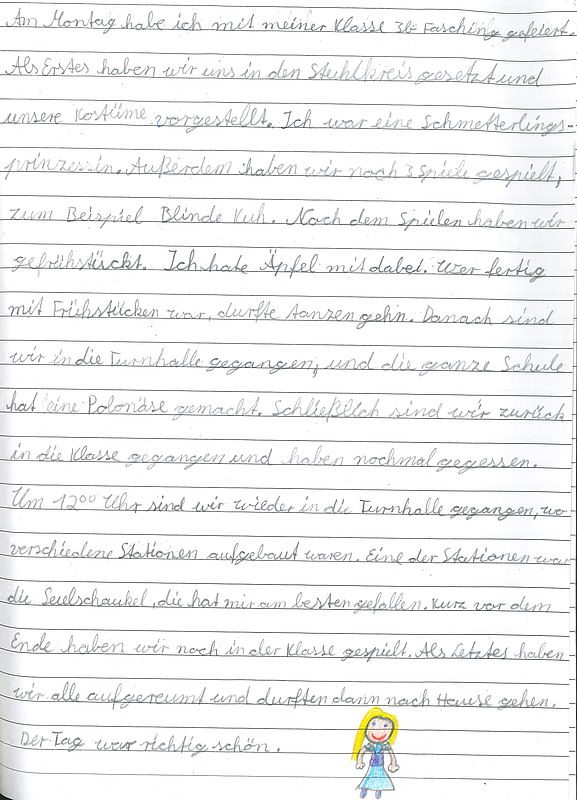 Am Montag habe ich mit meiner Klasse 3b Fasching gefeiert.
Als Erstes haben wir uns in den Stuhlkreis gesetzt und
unsere Kostüme vorgestellt. Ich war eine Schmetterlings-
prinzessin. Außerdem haben wir noch 3 Spiele gespielt,
zum Beispiel Blinde Kuh. Nach dem Spielen haben wir
gefrühstückt. Ich hate Äpfel mit dabei. Wer fertig
mit Frühstücken war, durfte tanzen gehn. Danach sind
wir in die Turnhalle gegangen, und die ganze Schule
hat eine Polonäse gemacht. Schließlich sind wir zurück
in die Klasse gegangen und haben nochmal gegessen.
Um 12⁰⁰ Uhr sind wir wieder in die Turnhalle gegangen, wo
verschiedene Stationen aufgebaut waren. Eine der Stationen war
die Seilschaukel, die hat mir am besten gefallen. Kurz vor dem
Ende haben wir noch in der Klasse gespielt. Als Letztes haben
wir alle aufgereumt und durften dann nach Hause gehen.
Der Tag war richtig schön.